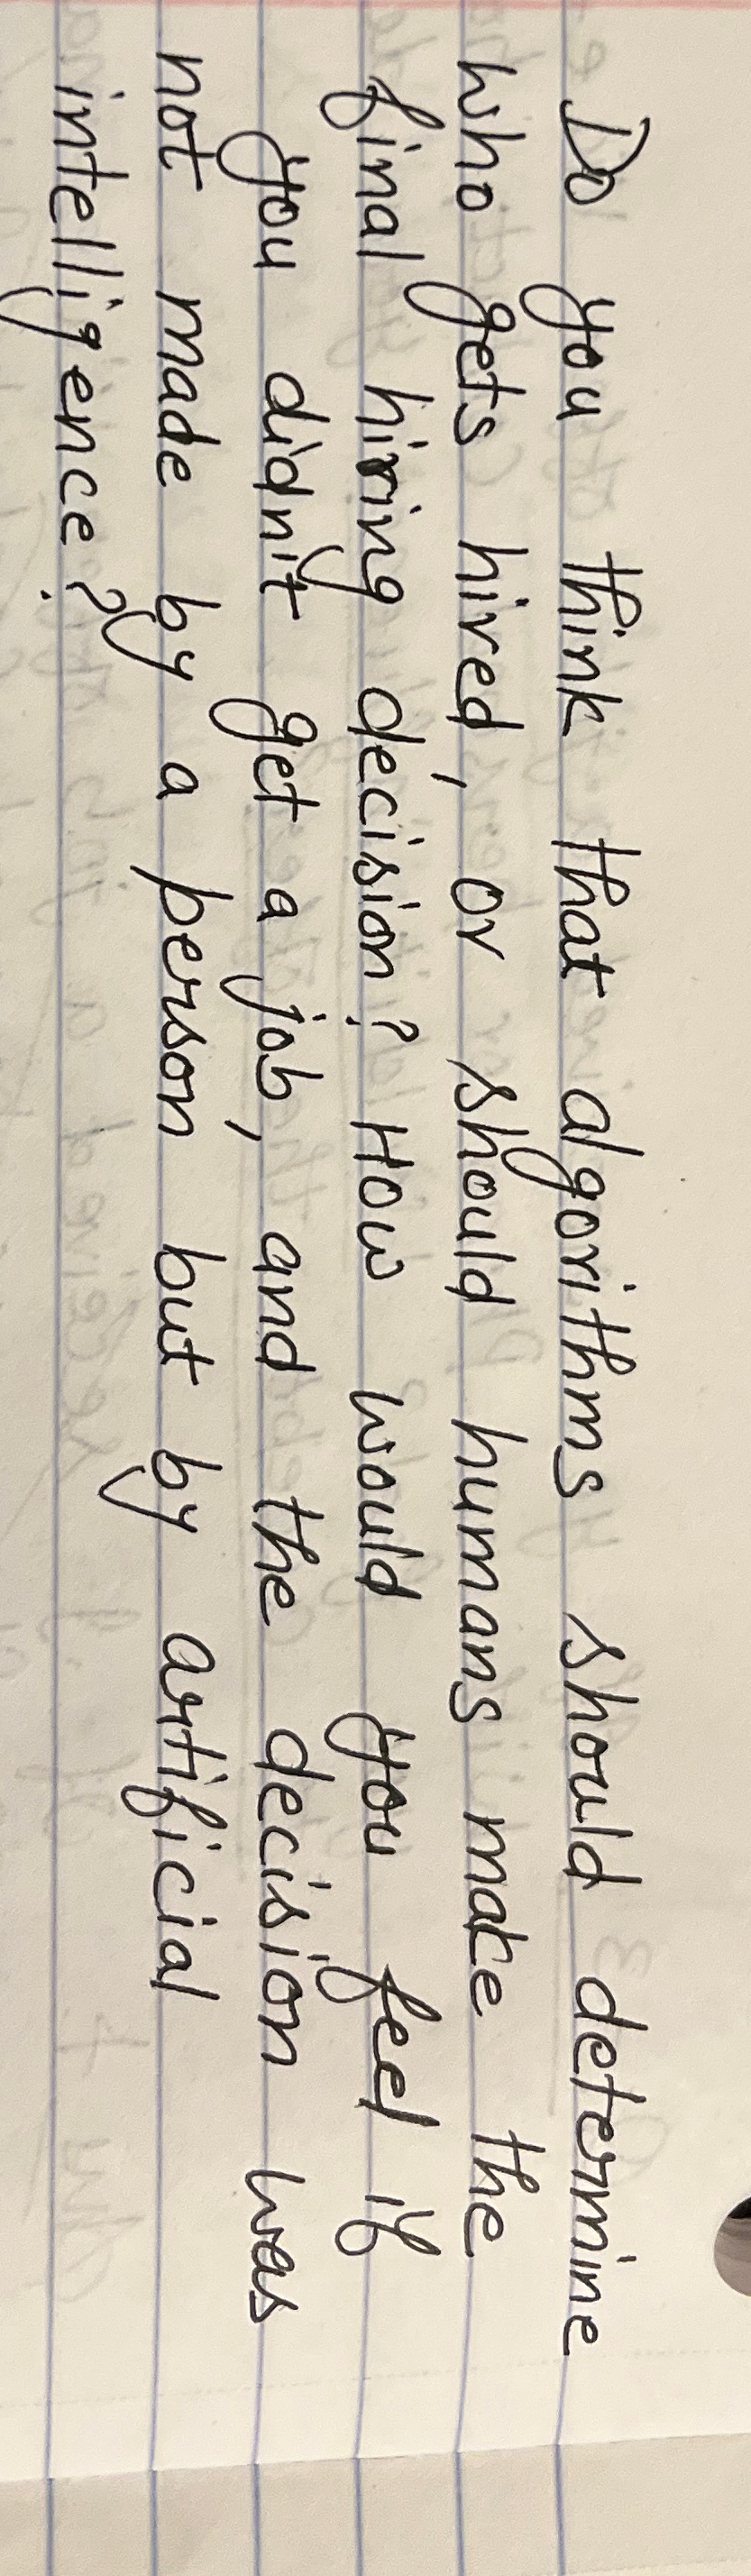 Do you think that algorithms should determine
who gets hired, or should humans make the
final hiring decision? How would you feel if
you didn't get a job, and the decision was
not made by a person but by artificial
intelligence?